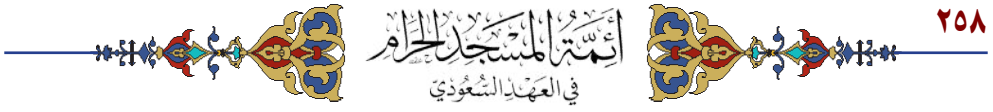 ٢٥٨
أئمة المسجد الحرام
في العهد السعودي